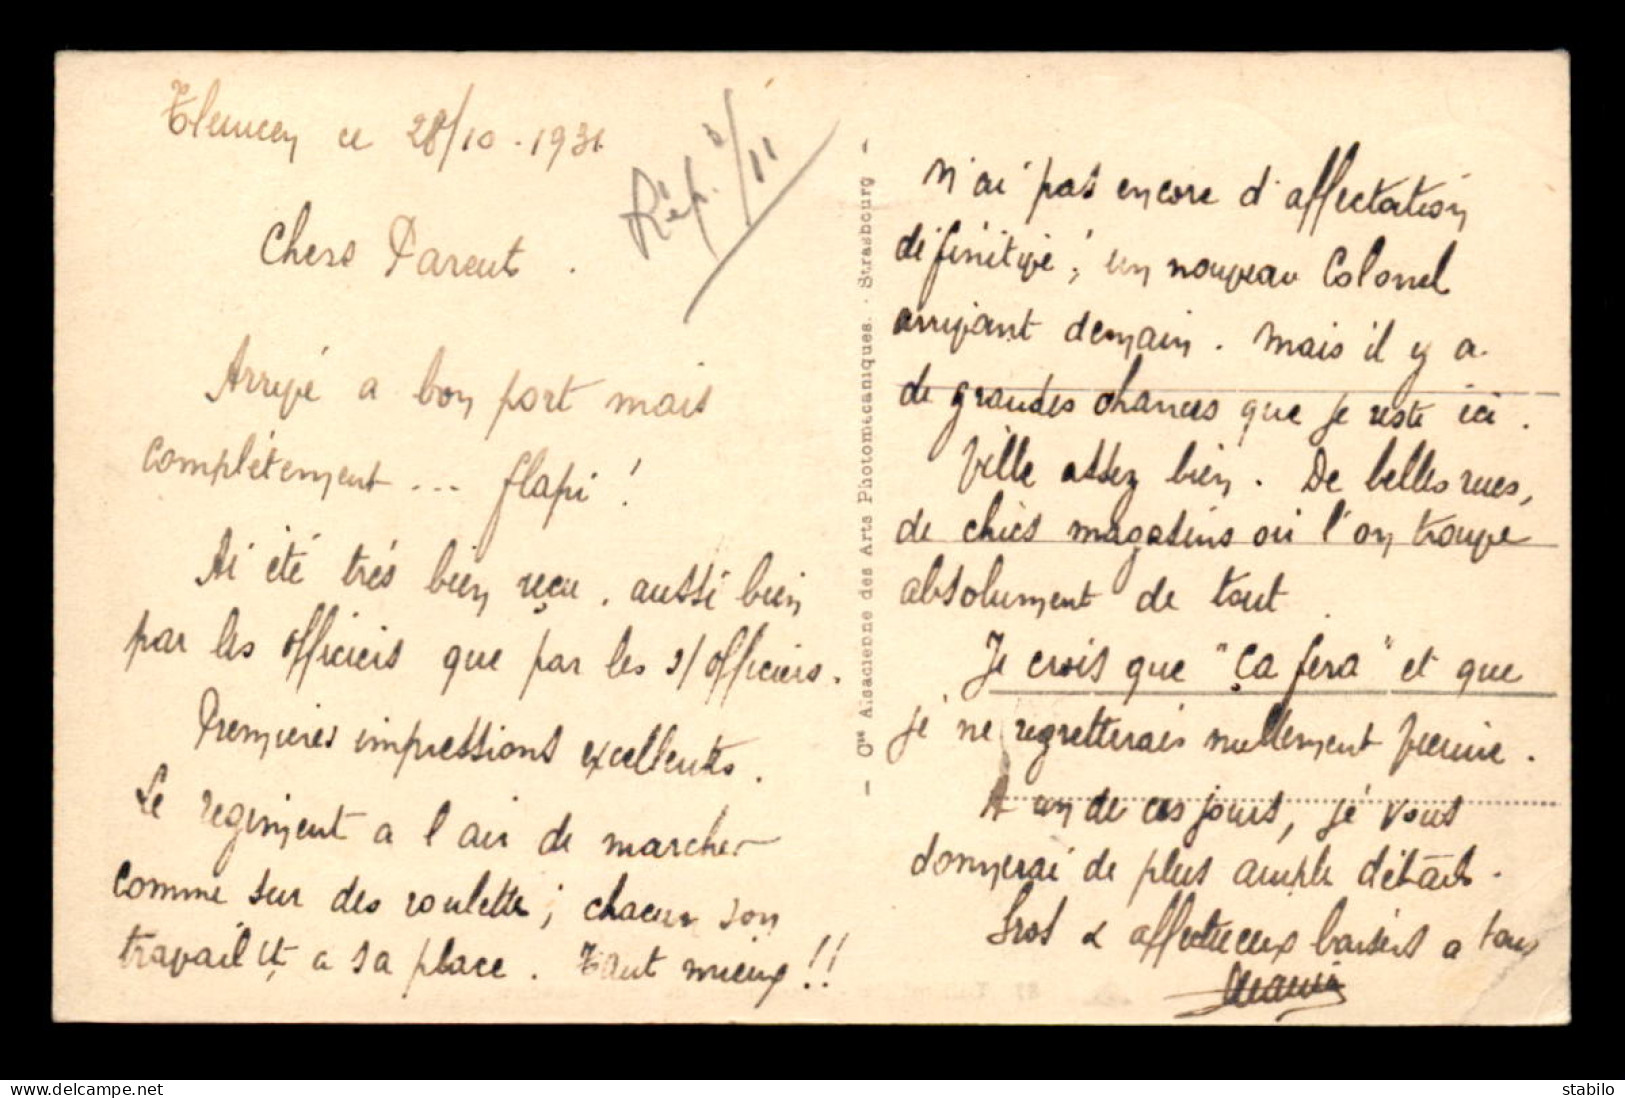 Tlemcen ce 28/10-1931
Rép. 3/11
Chers Parent.
Arrivé a bon port mais
complètement ... flapi!
Ai été très bien reçu, aussi bien
par les officiers que par les s/officiers.
Premières impressions excellentes.
Le regiment a l'air de marcher
comme sur des roulette; chacun son
travail et a sa place. Tant mieux!!
- Cie Alsacienne des Arts Photomécaniques. - Strasbourg -
n'ai pas encore d'affectation
définitive, un nouveau Colonel
arrivant demain. Mais il y a
de grandes chances que je reste ici.
Ville assez bien. De belles rues,
de chics magasins où l'on trouve
absolument de tout.
Je crois que "ça fera" et que
je ne regretterais nullement
A un de ces jours, je vous
donnerai de plus ample détails.
Gros & affectueux baisers a tous
stabilo